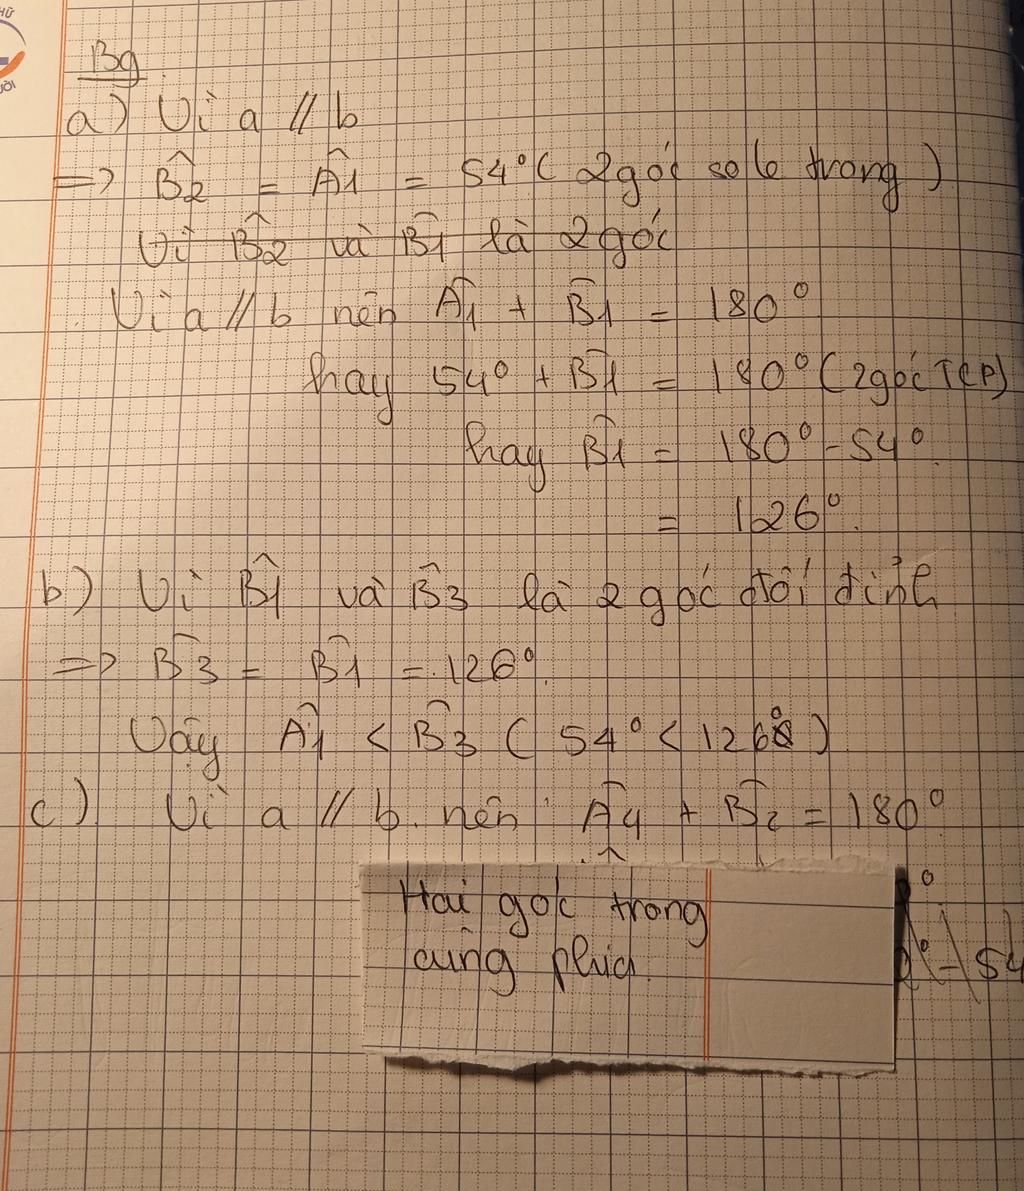 HỮ
ƯỜI
Bg
a) Vì a // b
=> B̂2 = Â1 = 54° ( 2 góc so le trong )
Vì B̂2 và B̂1 là 2 góc
Vì a // b nên Â1 + B̂1 = 180°
hay 54° + B̂1 = 180° ( 2 góc TCP)
hay B̂1 = 180° - 54°
= 126°.
b) Vì B̂1 và B̂3 là 2 góc đối đỉnh
=> B̂3 = B̂1 = 126°.
Vậy Â1 < B̂3 ( 54° < 126° )
c) Vì a // b nên Â4 + B̂2 = 180°
Hai góc trong
cùng phía.
° - 54